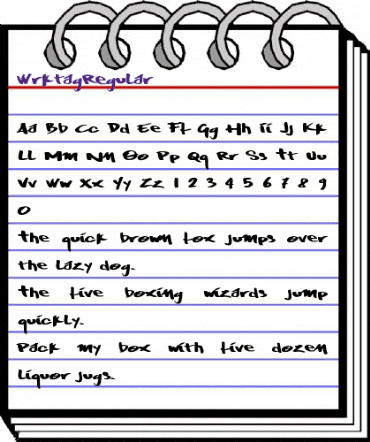 WrktagRegular
Aa Bb Cc Dd Ee Ff Gg Hh Ii Jj Kk
Ll Mm Nn Oo Pp Qq Rr Ss Tt Uu
Vv Ww Xx Yy Zz 1 2 3 4 5 6 7 8 9
0
the quick brown fox jumps over
the lazy dog.
the five boxing wizards jump
quickly.
Pack my box with five dozen
liquor jugs.